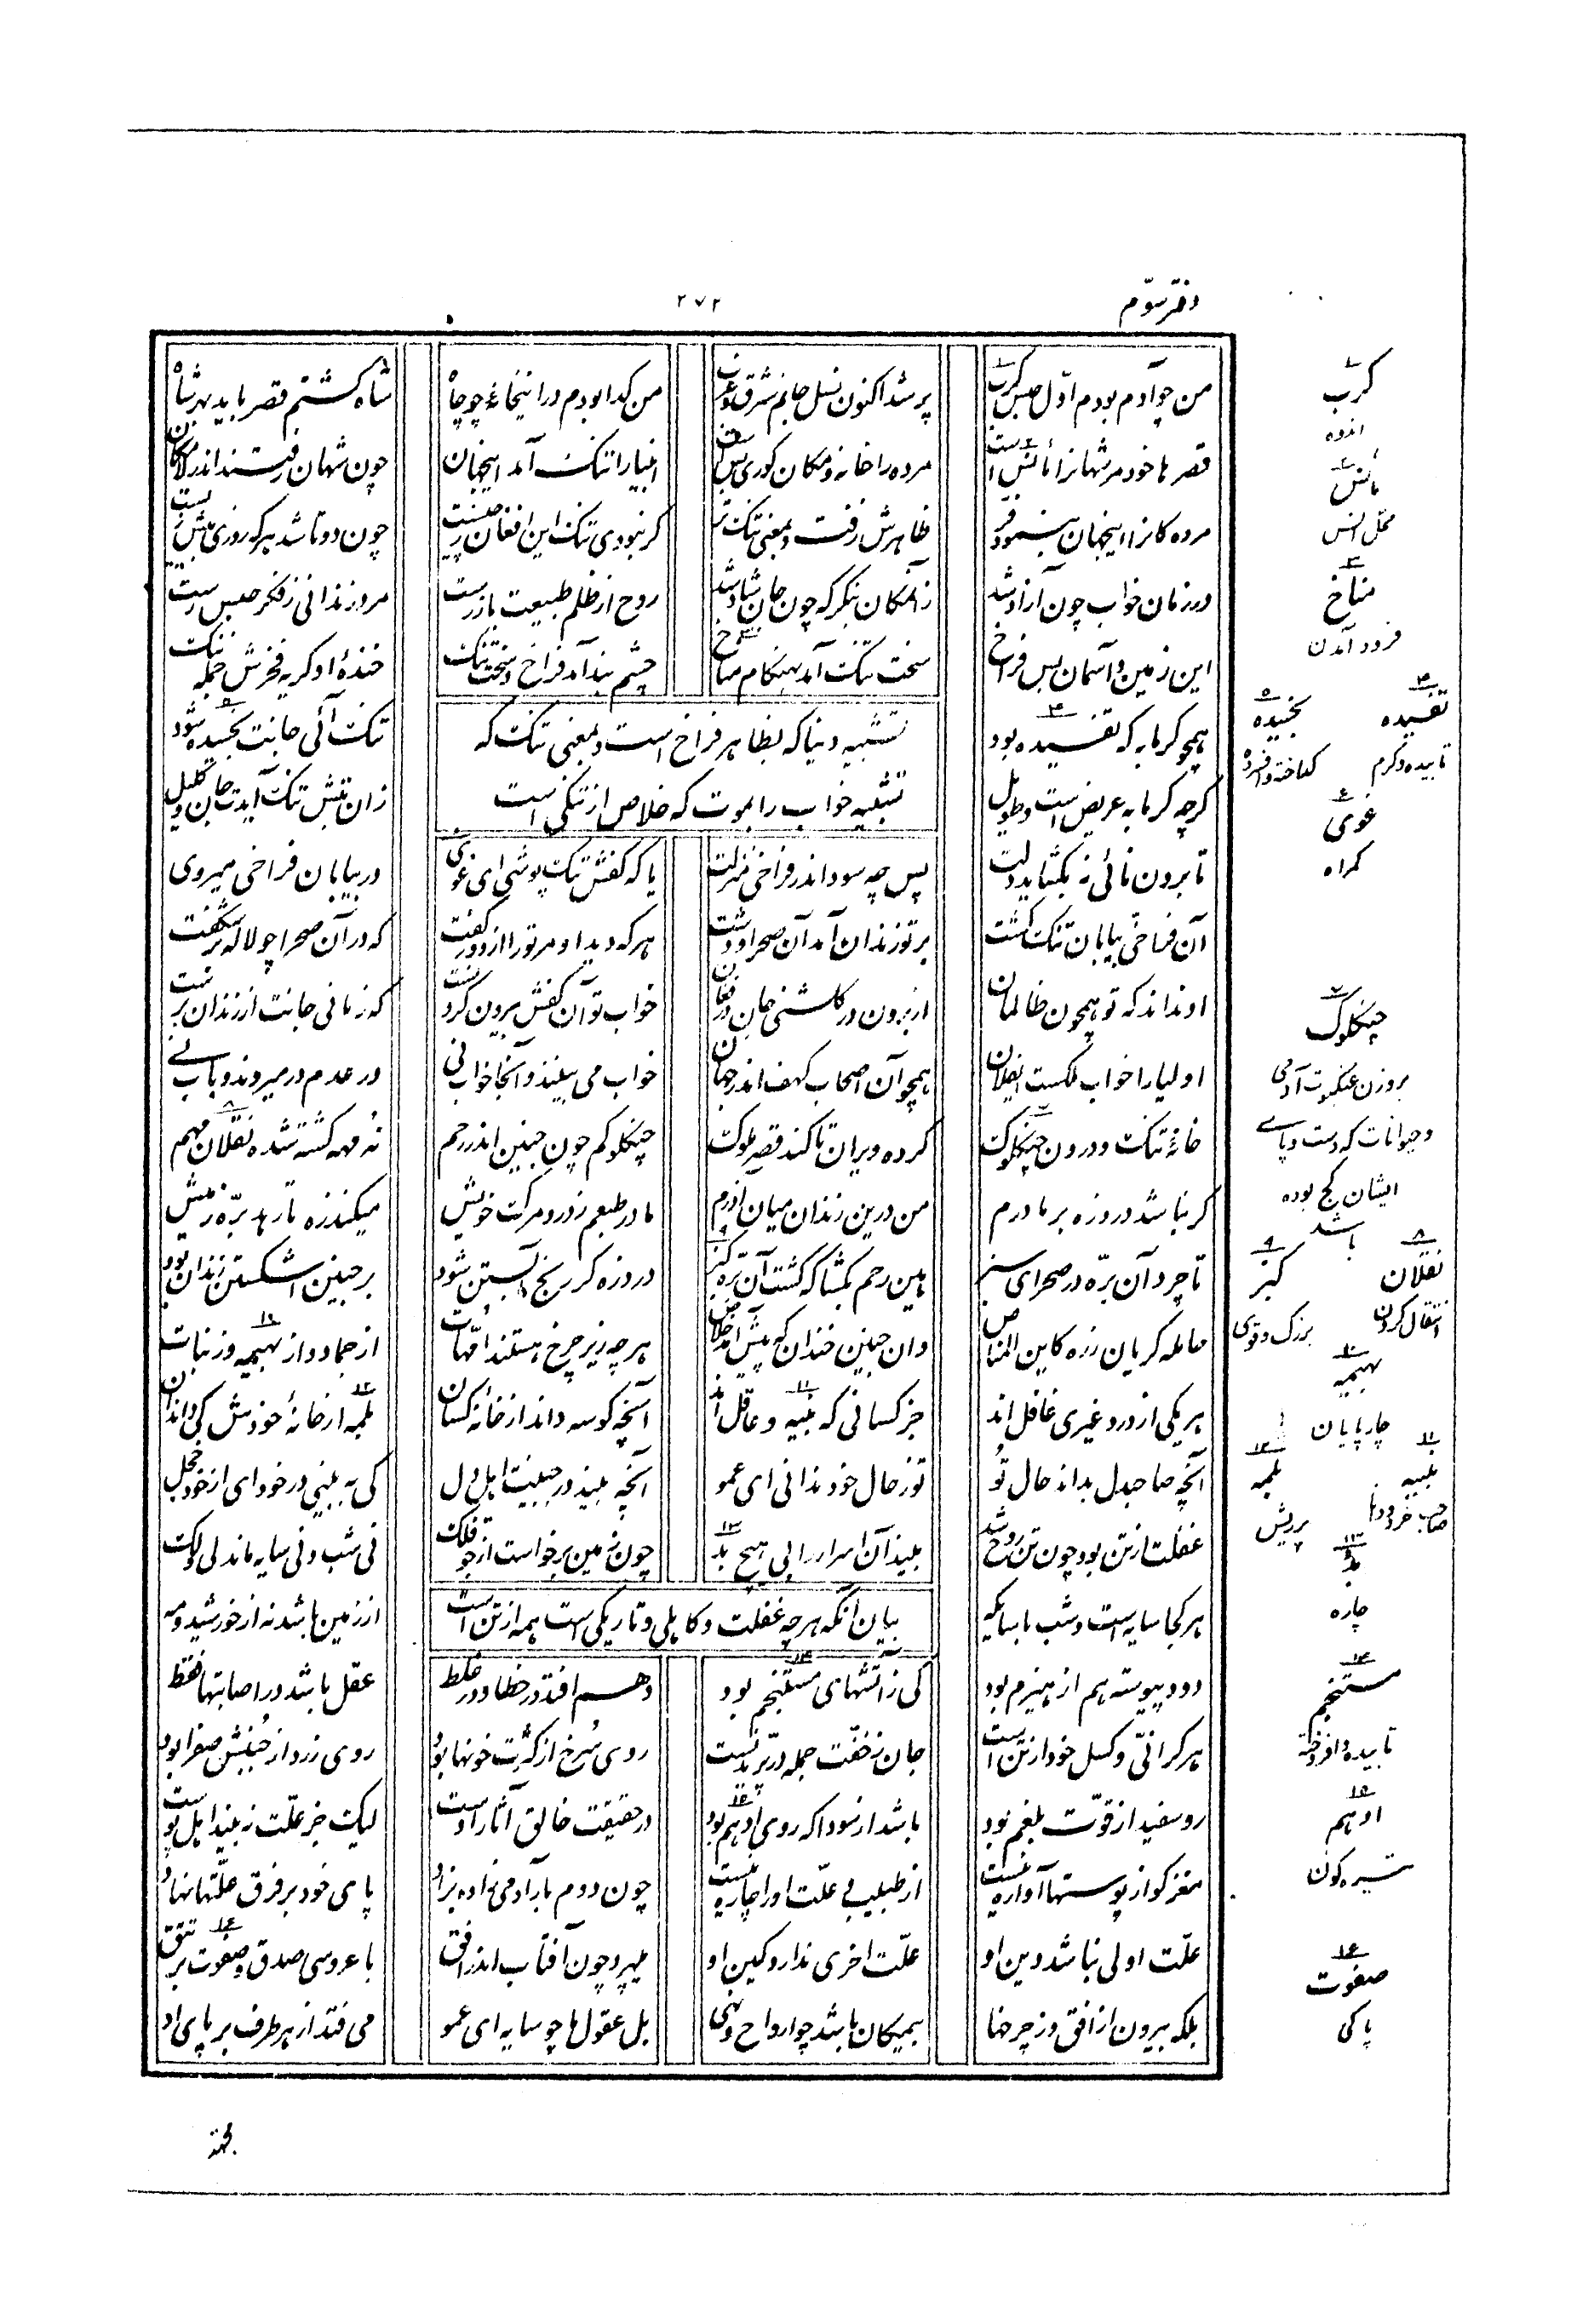 دفتر سوّم
۲۷۲
من چو آدم بودم اوّل حبس کرب پر شد اکنون نسل جانم شرق و غرب من گدا بودم در اینخانهٔ چو چاه شاه گشتم قصر باید بهر شاه
قصرها خود مر شهانرا مأنس است مرده را خانه و مکان گوری بس است انبیا را تنگ آمد اینجهان چون شهان رفتند اندر لامکان
مرده‌کانرا اینجهان بنمود فر ظاهرش زفت و بمعنی تنگ تر گر نبودی تنگ این افغان ز چیست چون دو تا شد هر که روزی بیش زیست
در زمان خواب چون آزاد شد زآن مکان بنگر که چون جان شاد شد روح از ظلم طبیعت باز رست مرد زندانی ز فکر حبس رست
این زمین و آسمان بس فراخ سخت تنگ آمد بهنگام مناخ چشم بند آمد فراخ و سخت تنگ خندهٔ او گریه فخرش جمله ننگ
تشبیه دنیا که بظاهر فراخ است و بمعنی تنگ که
تشبیه خواب را بموت که خلاص از تنگی است
همچو گرمابه که تفسیده بود تنگ آئی جانت بخسیده شود
گرچه گرمابه عریض است و طویل زان تبش تنگ آیدت جان و کلیل
تا برون نائی نه بگشاید دلت پس چه سود اندر فراخی منزلت یا که کفش تنگ پوشی ای غوی در بیابان فراخی میروی
آن فراخی بیابان تنگ گشت بر تو زندان آمد آن صحرا و دشت هر که دید او مر تو را از دور گفت که در آن صحرا چو لاله بر شگفت
او نداند که تو همچون ظالمان از برون در گلشنی جان در فغان خواب تو آن کفش بیرون کردنست که زمانی جانت از زندان برست
اولیا را خواب ملکست ایفلان همچو آن اصحاب کهف اندر جهان خواب می بینند و آنجا خواب نی در عدم در میروند و باب نی
خانهٔ تنگ و درون چنگلوک کرده ویران تا کند قصر ملوک چنگلوکم چون جنین اندر رحم نُه مهه گشته شده نقلان مهم
گر نباشد درد زه بر مادرم من درین زندان میان آذرم مادر طبعم ز درد مرگ خویش میکند زه تا رهد برّه ز میش
تا چرد آن برّه در صحرای سبز هین رحم بگشا که گشت آن برّه گبز درد زه گر رنج آبستن شود بر جنین اشکستن زندان بود
حامله گریان ز زه کاین المناص وان جنین خندان که پیش آمد خلاص هر چه زیر چرخ هستند امّهات از جماد و از بهیمه وز نبات
هر یکی از درد غیری غافل اند جز کسانی که نبیه و عاقل اند آنچه کوسه داند از خانه کسان بلمه از خانهٔ خودش کی داند آن
آنچه صاحبدل بداند حال تُو تو ز حال خود ندانی ای عمو آنچه بیند در جبینت اهل دل کی به بینی در خود ای از خود خجل
غفلت از تن بود چون تن روح شد بیند آن اسرار را بی هیچ بد چون زمین برخواست از جو فلک نی شب و نی سایه ماند لی و لک
بیان آنکه هر چه غفلت و کاهلی و تاریکی است همه از تن است
هر کجا سایه است و شب یا سایگه از زمین باشد نه از خورشید و مه
دود پیوسته هم از هیزم بود کی ز آتشهای مستنجم بود وهم افتد در خطا و در غلط عقل باشد در اصابتها فقط
هر گرانیّ و کسل خود از تن است جان ز خفّت جمله در پرّیدنست روی سُرخ از کثرت خونها بود روی زرد از جُنبش صفرا بود
رو سفید از قوّت بلغم بود باشد از سودا که روی ادهم بود در حقیقت خالق آثار اوست لیک جز علّت نه بیند اهل پوست
مغز کو از پوستها آواره نیست از طبیب و علّت او را چاره نیست چون دوم بار آدمی زاده بزاد پای خود بر فرق علّتها نهاد
علّت اولی نباشد دین او علّت اخری ندارد کین او میپرد چون آفتاب اندر افق با عروسی صدق و صفوت بر تتق
بلکه بیرون از افق وز چرخها بیمکان باشد چو ارواح و نهی بل عقول ما چو سایه ای عمو می فتد از هر طرف بر پای او
۱ کرب
اندوه
۲ مأنس
محل انس
۳ مناخ
فرود آمدن
۴ تفسیده
تابیده و گرم
۵ بخسیده
گداخته و افسرده
۶ غوی
گمراه
۷ چنگلوک
بر وزن عنکبوت آدمی
و حیوانات که دست و پای
ایشان کج بوده
باشد
۸ نقلان
انتقال کردن
۹ گبز
بزرگ و قوی
۱۰ بهیمه
چارپایان
۱۱ نبیه
صاحب خرد و دانا
۱۲ بلمه
پر ریش
۱۳ بد
چاره
۱۴ مستنجم
تابیده و افروخته
۱۵ ادهم
تیره گون
۱۶ صفوت
پاکی